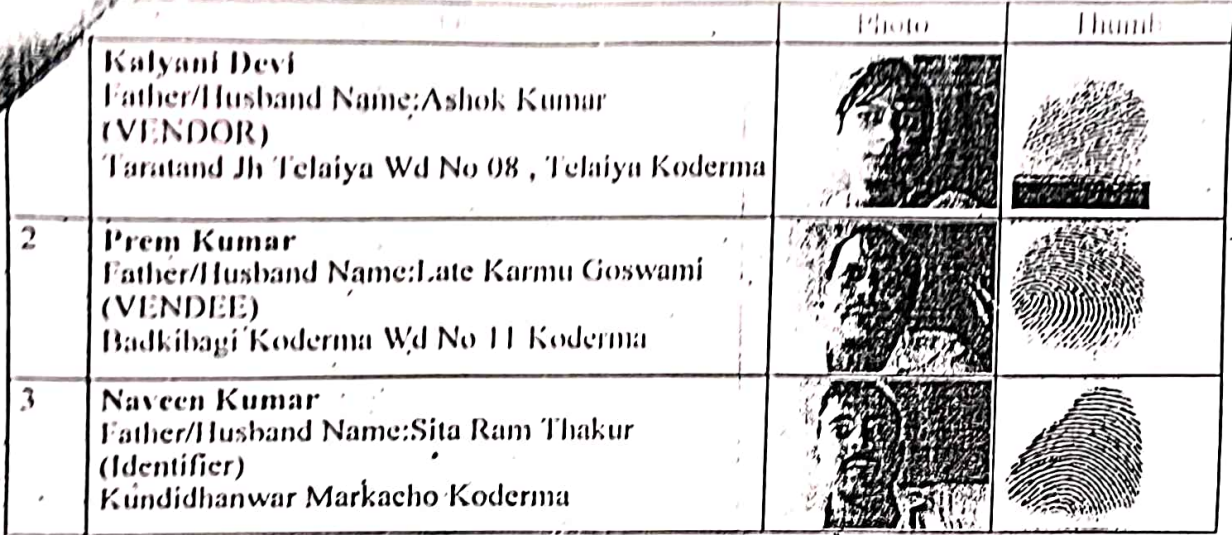 Photo Thumb
Kalyani Devi
Father/Husband Name:Ashok Kumar
(VENDOR)
Taratand Jh Telaiya Wd No 08 , Telaiya Koderma
2
Prem Kumar
Father/Husband Name:Late Karmu Goswami
(VENDEE)
Badkibagi Koderma Wd No 11 Koderma
3
Naveen Kumar
Father/Husband Name:Sita Ram Thakur
(Identifier)
Kundidhanwar Markacho Koderma